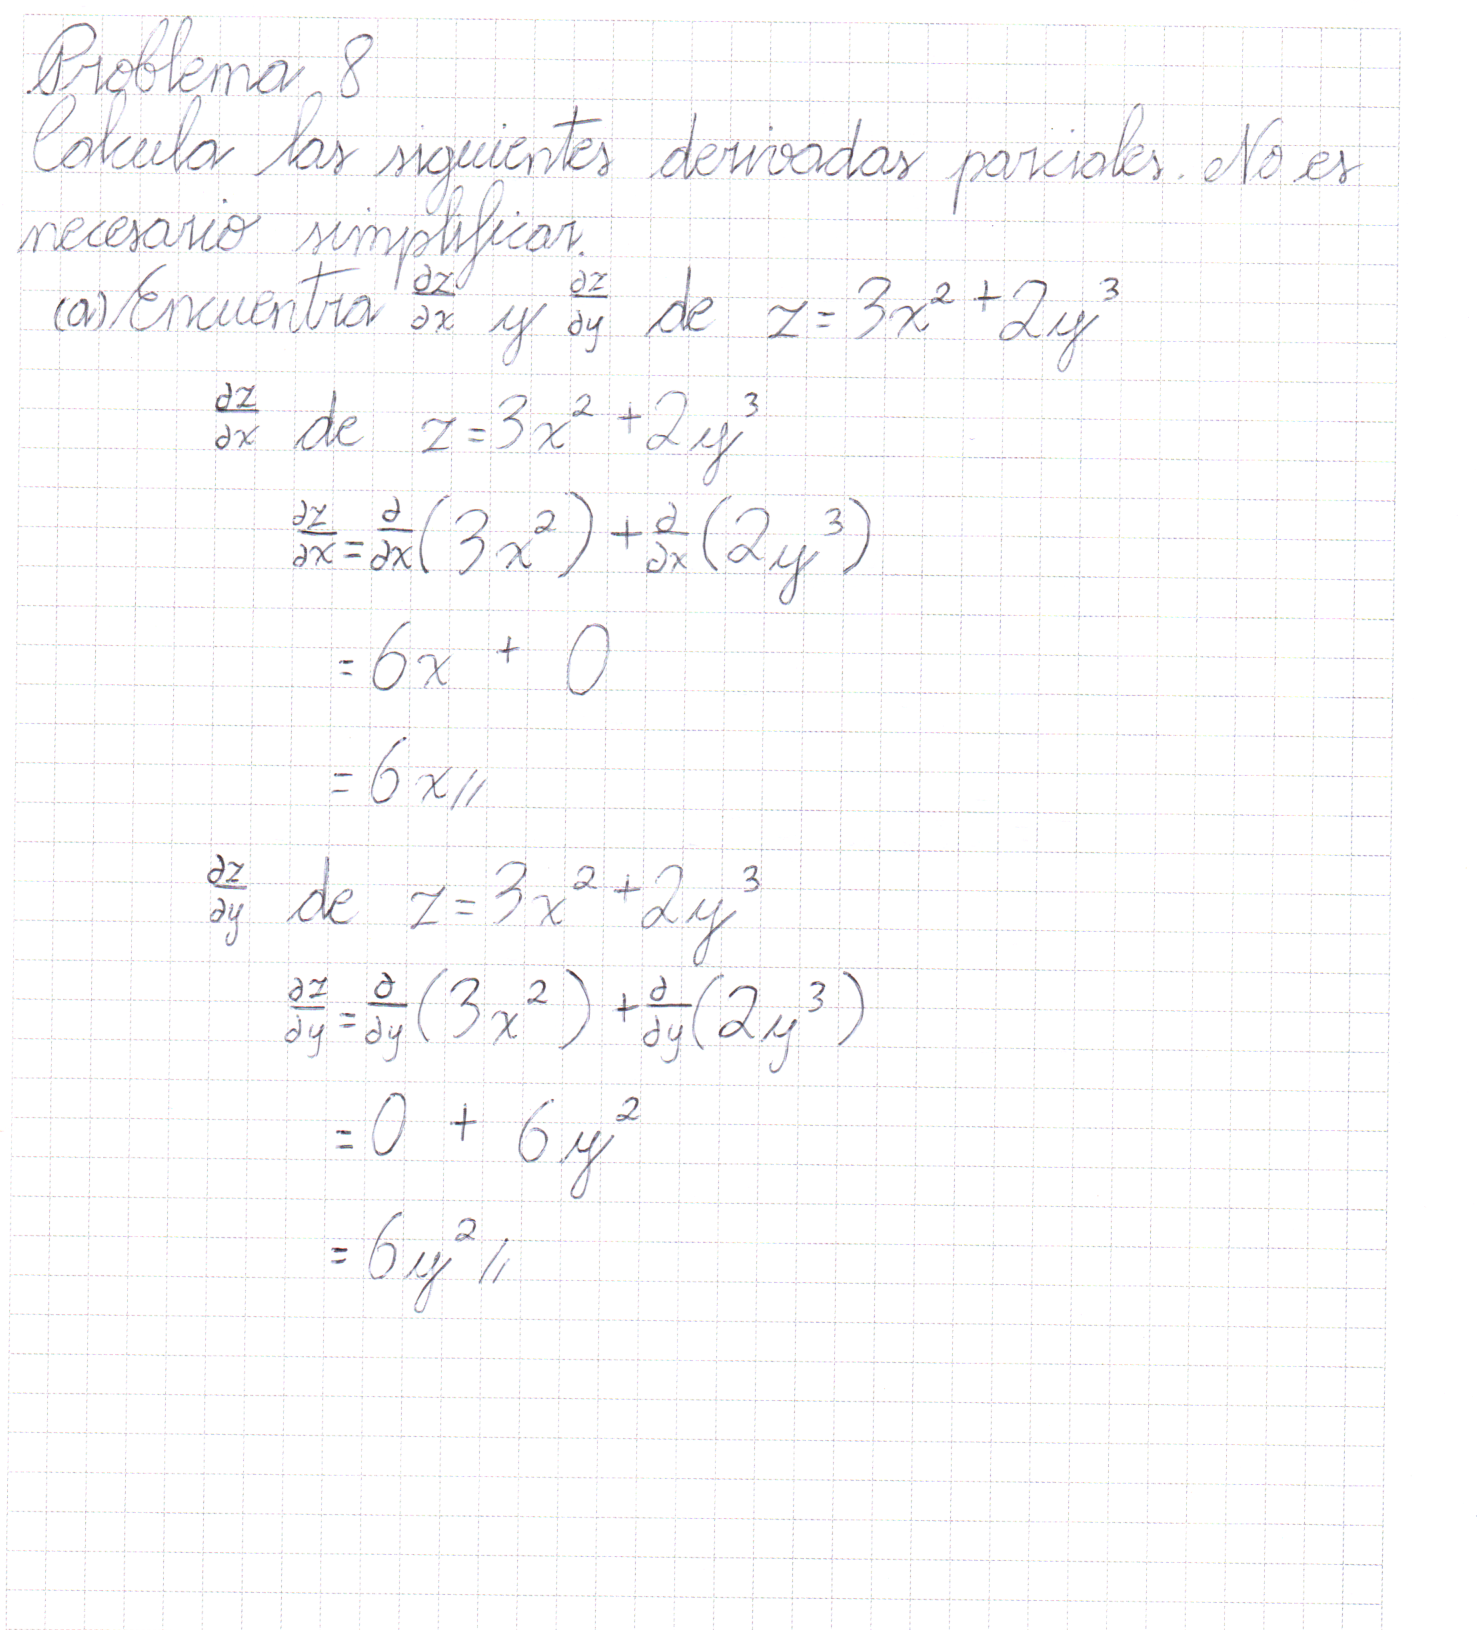 Problema 8
Calcula las siguientes derivadas parciales. No es
necesario simplificar.
(a) Encuentra ∂z/∂x y ∂z/∂y de z = 3x² + 2y³
∂z/∂x de z = 3x² + 2y³
∂z/∂x = ∂/∂x (3x²) + ∂/∂x (2y³)
= 6x + 0
= 6x //
∂z/∂y de z = 3x² + 2y³
∂z/∂y = ∂/∂y (3x²) + ∂/∂y (2y³)
= 0 + 6y²
= 6y² //